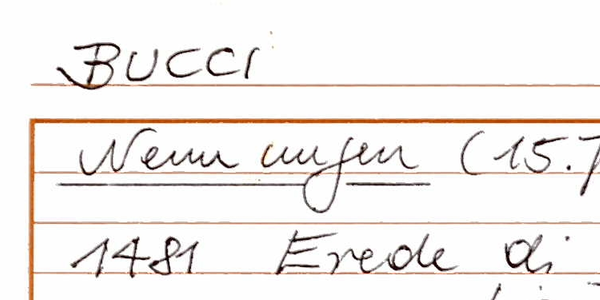 BUCCI
Nennungen (15.7
1481 Erede di